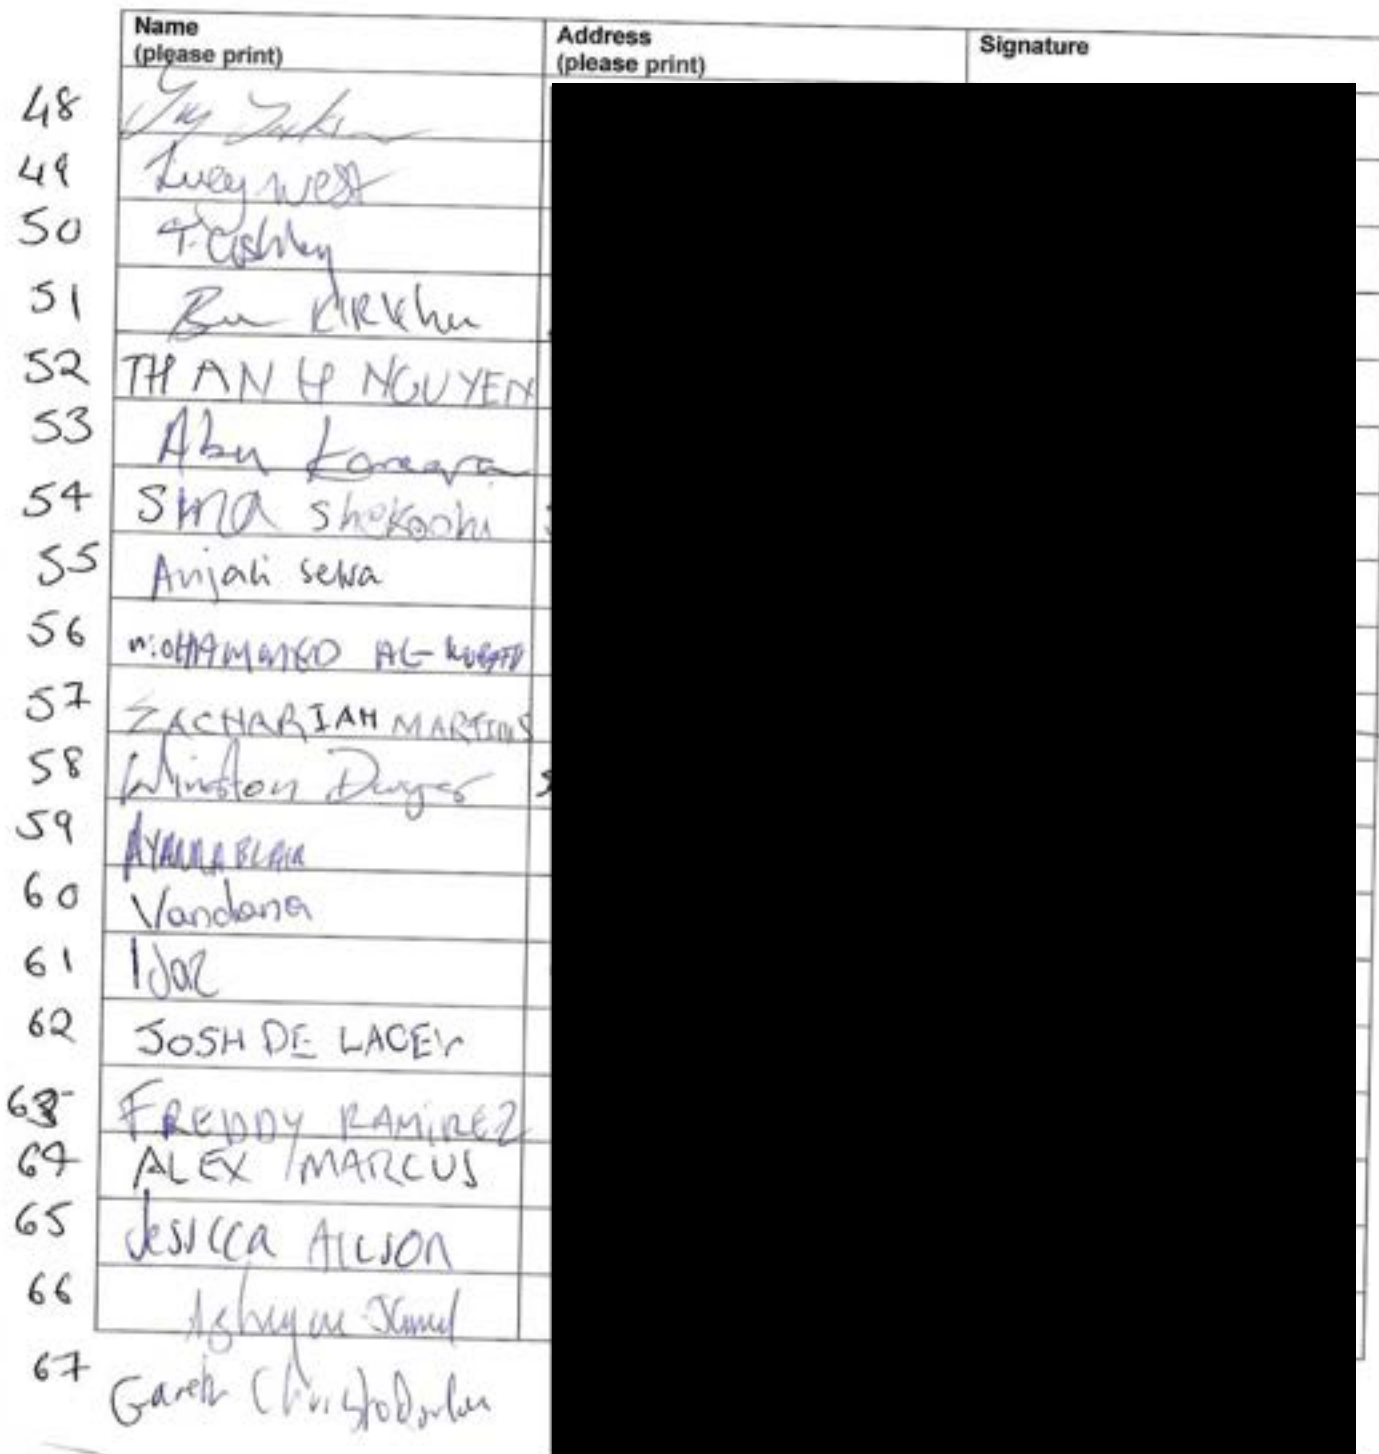 Name Address Signature
(please print) (please print)
48
49 Lucy West
50 T. Ashley
51 Kirkhu
52 THANH NGUYEN
53 Abu
54 Sina Shokoohi
55 Anjali Selva
56 MOHAMMED AL-
57 ZACHARIAH MARTINS
58 Winston
59 AYANNA BLAIR
60 Vandana
61
62 JOSH DE LACEY
63 FREDDY RAMIREZ
64 ALEX MARCUS
65 Jessicca Allson
66
67 Gareth Christodoulou